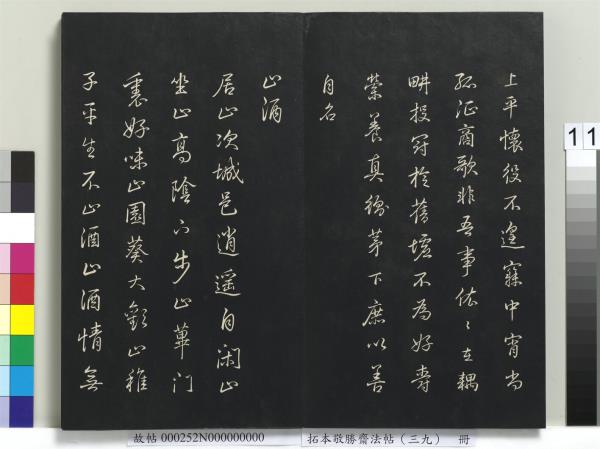 上平懷役不遑寐中宵尚
孤征商歌非吾事依〻在耦
畊投冠於舊墟不為好爵
縈養真衡茅下庶以善
自名
止酒
居止次城邑逍遙自閑止
坐止高蔭下步止蓽門
裏好味止園葵大歡止稚
子平生不止酒止酒情無
故帖 000252N000000000 拓本敬勝齋法帖(三九) 冊
11